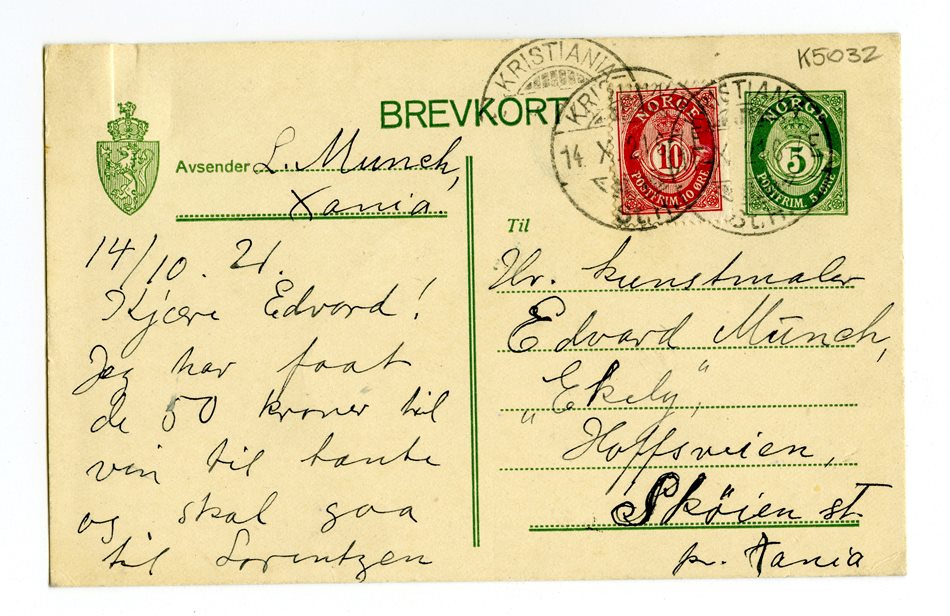 K5032
BREVKORT
KRISTIANIA
KRISTIANIA
14 X
NORGE
10
POSTFRIM. 10 ØRE
NORGE
5
POSTFRIM. 5 ØRE
Avsender L. Munch,
Xania.
14/10. 21.
Kjære Edvard!
Jeg har faat
de 50 kroner til
vin til tante
og skal gaa
til Lorentzen
Til
Hr. kunstmaler
Edvard Munch,
„Ekely",
Hoffsveien,
Skøien st.
pr. Xania